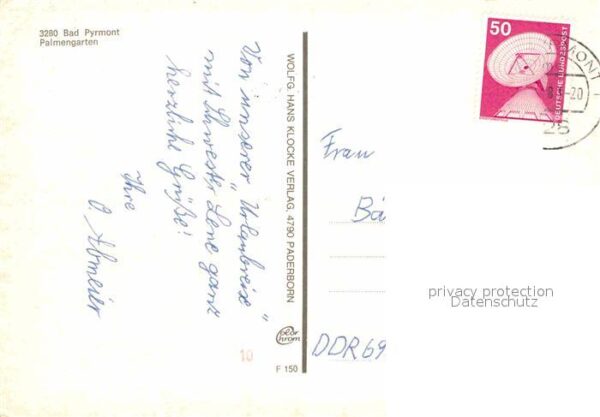 3280 Bad Pyrmont
Palmengarten
Von unserer "Urlaubreise"
mit Schwester Lene ganz
herzliche Grüße!
Ihre
O. Abmeier
WOLFG. HANS KLOCKE VERLAG, 4790 PADERBORN
F 150
10
50
DEUTSCHE BUNDESPOST
MONT 1
-20
28
Frau
Bä
DDR 69
privacy protection
Datenschutz